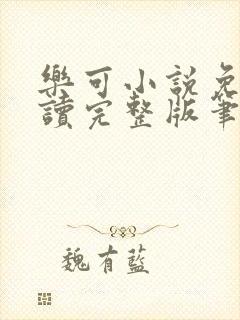 樂可小說免
讀完整版筆
魏有藍